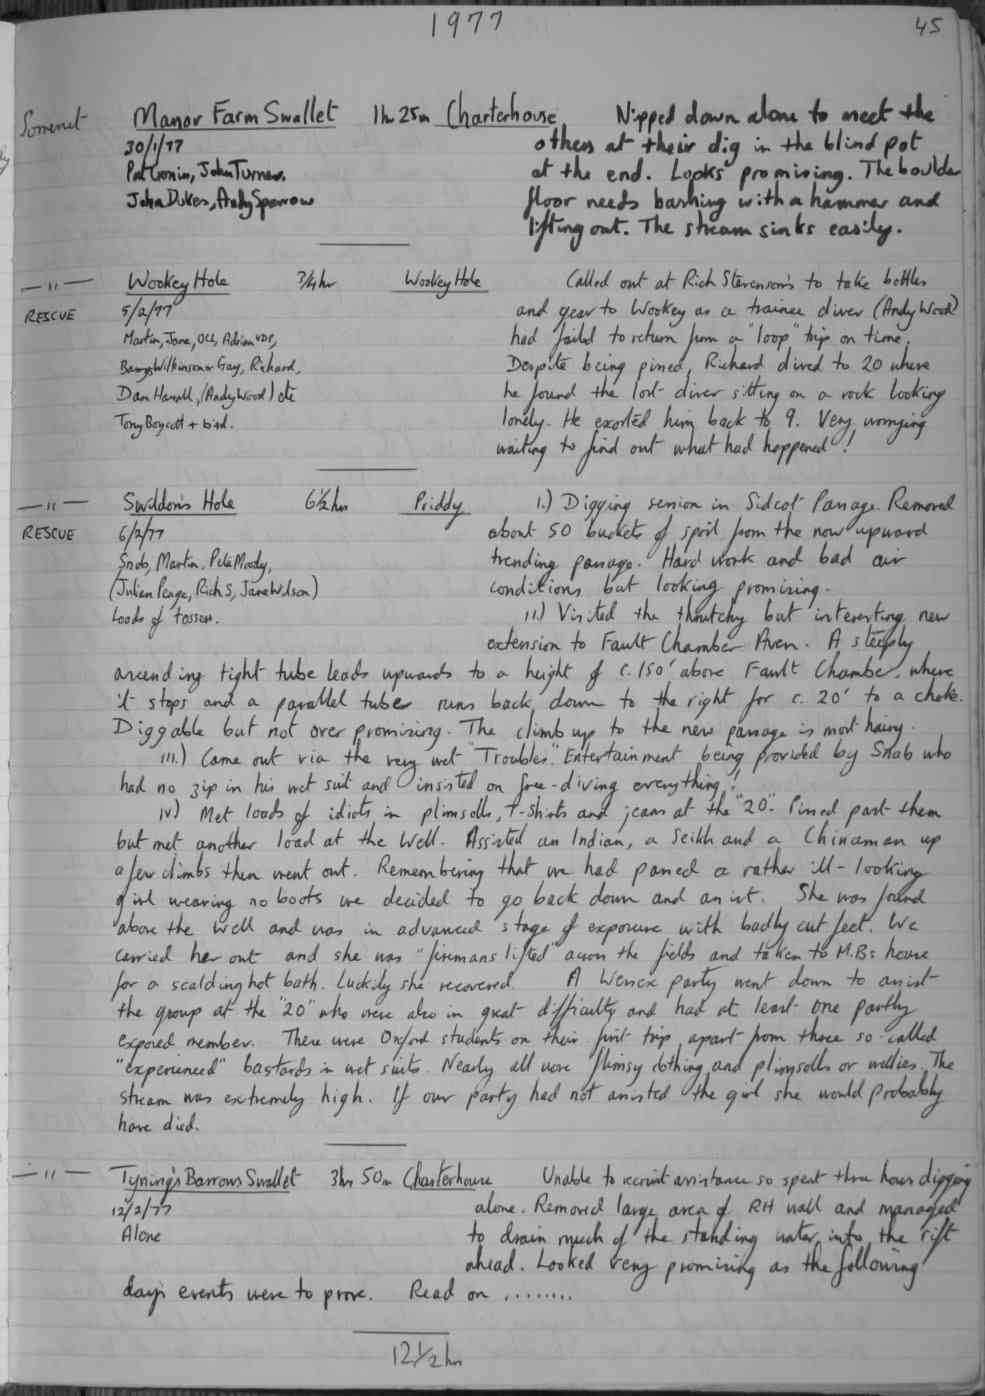 1977
45
Somerset Manor Farm Swallet 1hr 25m Charterhouse Nipped down alone to meet the
30/1/77 others at their dig in the blind pot
Pat Cronin, John Turner, at the end. Looks promising. The boulder
John Dukes, Andy Sparrow floor needs bashing with a hammer and
lifting out. The stream sinks easily.
—"— Wookey Hole 3/4hr Wookey Hole Called out at Rich Stevenson's to take bottles
RESCUE 5/2/77 and gear to Wookey as a trainee diver (Andy Wood)
Martin, Jane, Oll, Adrian VDP, had failed to return from a "loop" trip on time.
Barry Wilkinson Gay, Richard, Despite being pissed, Richard dived to 20 where
Dan Hassall, (Andy Wood) etc he found the lost diver sitting on a rock looking
Tony Boycott + bird. lonely. He escorted him back to 9. Very worrying
waiting to find out what had happened!
—"— Swildon's Hole 6½hrs Priddy i.) Digging session in Sidcot Passage. Removed
RESCUE 6/2/77 about 50 buckets of spoil from the now upward
Snab, Martin, Pete Moody, trending passage. Hard work and bad air
(Julien Penge, Rich S, Jane Wilson) conditions but looking promising.
Loads of tossers. ii.) Visited the thrutchy but interesting new
extension to Fault Chamber Aven. A steeply
ascending tight tube leads upwards to a height of c.150' above Fault Chamber, where
it stops and a parallel tube runs back down to the right for c. 20' to a choke.
Diggable but not over promising. The climb up to the new passage is most hairy.
iii.) Came out via the very wet "Troubles". Entertainment being provided by Snab who
had no zip in his wet suit and insisted on free-diving everything!
iv) Met loads of idiots in plimsolls, T-shirts and jeans at the "20". Pissed past them
but met another load at the Well. Assisted an Indian, a Seikh and a Chinaman up
a few climbs then went out. Remembering that we had passed a rather ill-looking
girl wearing no boots we decided to go back down and assist. She was found
above the Well and was in advanced stage of exposure with badly cut feet. We
carried her out and she was "firemans lifted" across the fields and taken to M.B.s house
for a scalding hot bath. Luckily she recovered. A Wessex party went down to assist
the group at the "20" who were also in great difficulty and had at least one partly
exposed member. These were Oxford students on their first trip, apart from three so-called
"experienced" bastards in wet suits. Nearly all wore flimsy clothing and plimsolls or wellies. The
stream was extremely high. If our party had not assisted the girl she would probably
have died.
—"— Tynings Barrows Swallet 3hr 50m Charterhouse Unable to recruit assistance so spent three hours digging
12/2/77 alone. Removed large area of RH wall and managed
Alone to drain much of the standing water into the rift
ahead. Looked very promising as the following
days events were to prove. Read on ........
12½hrs